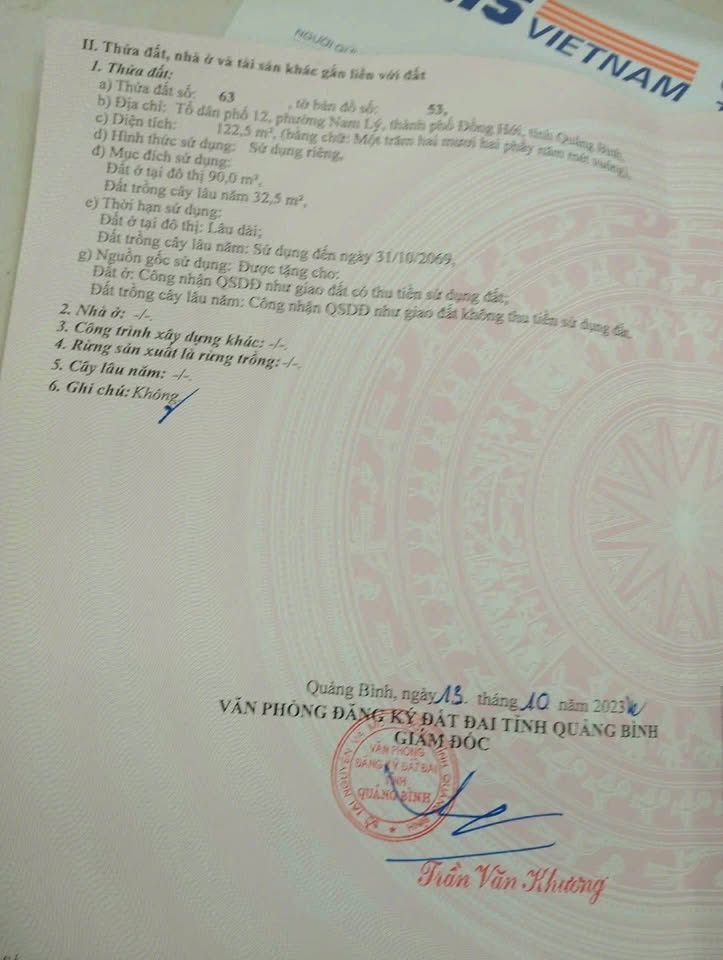 MS VIETNAM
NGƯỜI GỬI
II. Thửa đất, nhà ở và tài sản khác gắn liền với đất
1. Thửa đất:
a) Thửa đất số: 63 , tờ bản đồ số: 53,
b) Địa chỉ: Tổ dân phố 12, phường Nam Lý, thành phố Đồng Hới, tỉnh Quảng Bình,
c) Diện tích: 122,5 m², (bằng chữ: Một trăm hai mươi hai phẩy năm mét vuông),
d) Hình thức sử dụng: Sử dụng riêng,
đ) Mục đích sử dụng:
Đất ở tại đô thị 90,0 m²,
Đất trồng cây lâu năm 32,5 m²,
e) Thời hạn sử dụng:
Đất ở tại đô thị: Lâu dài;
Đất trồng cây lâu năm: Sử dụng đến ngày 31/10/2069,
g) Nguồn gốc sử dụng: Được tặng cho:
Đất ở: Công nhận QSDĐ như giao đất có thu tiền sử dụng đất;
Đất trồng cây lâu năm: Công nhận QSDĐ như giao đất không thu tiền sử dụng đất.
2. Nhà ở: -/-.
3. Công trình xây dựng khác: -/-.
4. Rừng sản xuất là rừng trồng: -/-.
5. Cây lâu năm: -/-.
6. Ghi chú: Không.
Quảng Bình, ngày 13. tháng 10 năm 2023
VĂN PHÒNG ĐĂNG KÝ ĐẤT ĐAI TỈNH QUẢNG BÌNH
GIÁM ĐỐC
VĂN PHÒNG
ĐĂNG KÝ ĐẤT ĐAI
TỈNH
QUẢNG BÌNH
Trần Văn Khương